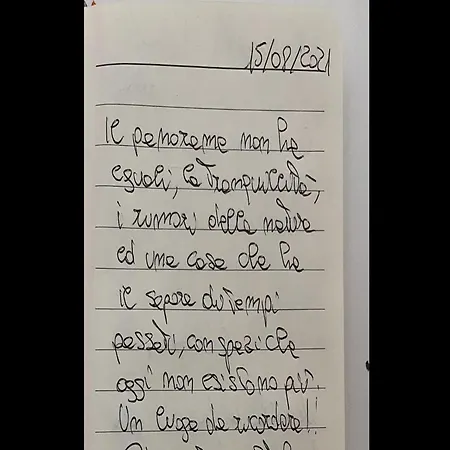 15/08/2021
Il panorama non ha
eguali, la tranquillità,
i rumori della natura
ed una casa che ha
il sapore di tempi
passati, con spazi che
oggi non esistono più.
Un luogo da ricordare!!